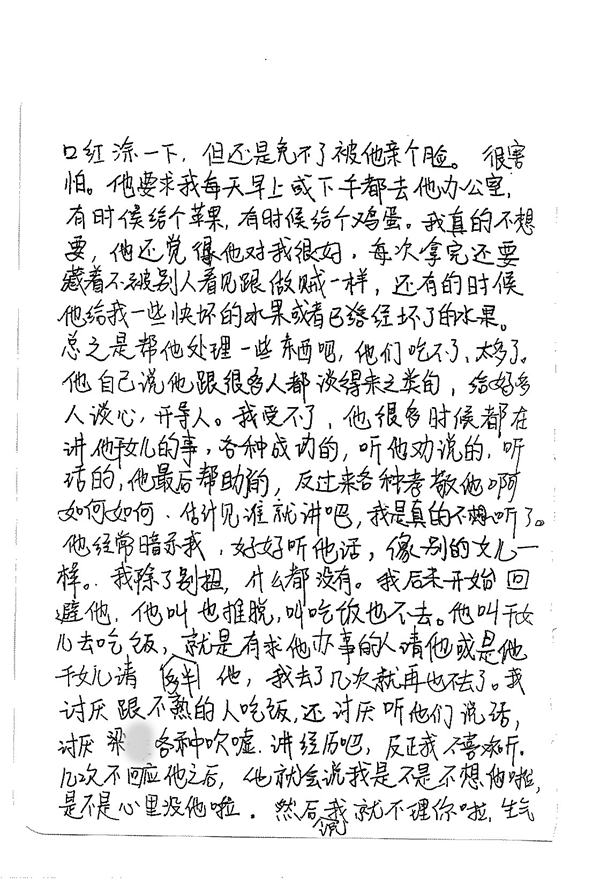 口红涂一下，但还是免不了被他亲个脸。很害
怕。他要求我每天早上或下午都去他办公室，
有时候给个苹果，有时候给个鸡蛋。我真的不想
要，他还觉得他对我很好，每次拿完还要
藏着不被别人看见跟做贼一样，还有的时候
他给我一些快坏的水果或者已经坏了的水果。
总之是帮他处理一些东西吧，他们吃不了，太多了。
他自己说他跟很多人都谈得来之类的，给好多
人谈心，开导人。我受不了，他很多时候都在
讲他干女儿的事，各种成功的，听他劝说的，听
话的，他最后帮助的，反过来各种孝敬他啊
如何如何，估计见谁就讲吧，我是真的不想听了。
他经常暗示我，好好听他话，像别的女儿一
样。我除了别扭，什么都没有。我后来开始回
避他，他叫也推脱，叫吃饭也不去。他叫干女
儿去吃饭，就是有求他办事的人请他或是他
干女儿请他，我去了几次就再也不去了。我
讨厌跟不熟的人吃饭，还讨厌听他们说话，
讨厌梁 各种吹嘘，讲经历吧，反正我不喜欢听。
几次不回应他之后，他就会说我是不是不想他啦，
是不是心里没他啦。然后我就不理你啦，生气